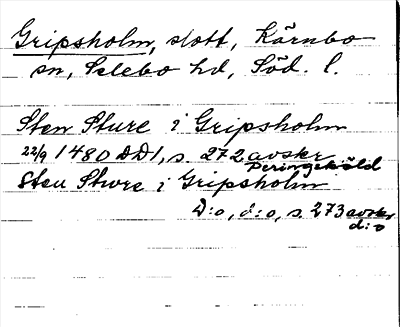 Gripsholm, slott, Kärnbo
sn, Selebo hd, Söd. l.
Sten Sture i Gripsholm
22/9 1480 DD1, s. 272 avskr
Peringskiöld
Sten Sture i Gripsholm
D:o, d:o, s. 273 avskr
d:o